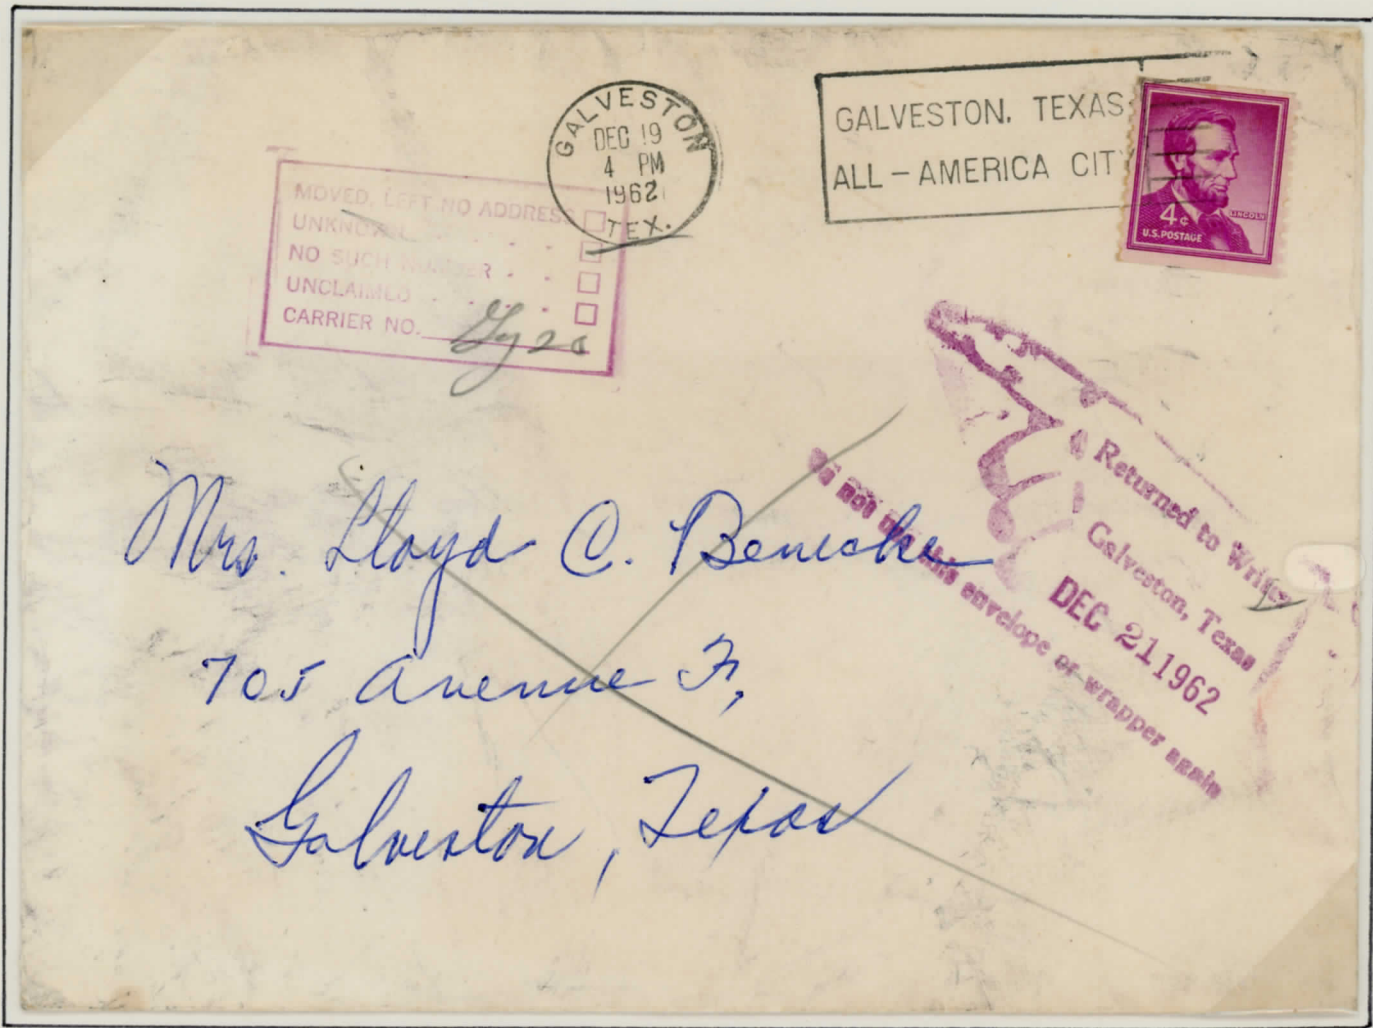 GALVESTON
DEC 19
4 PM
1962
TEX.
GALVESTON, TEXAS
ALL-AMERICA CITY
4¢
LINCOLN
U.S. POSTAGE
MOVED, LEFT NO ADDRESS
UNKNOWN
NO SUCH NUMBER
UNCLAIMED
CARRIER NO.
Returned to Writer
Galveston, Texas
DEC 21 1962
Do not use this envelope or wrapper again
Mrs. Lloyd C. Benecke
705 Avenue F,
Galveston, Texas